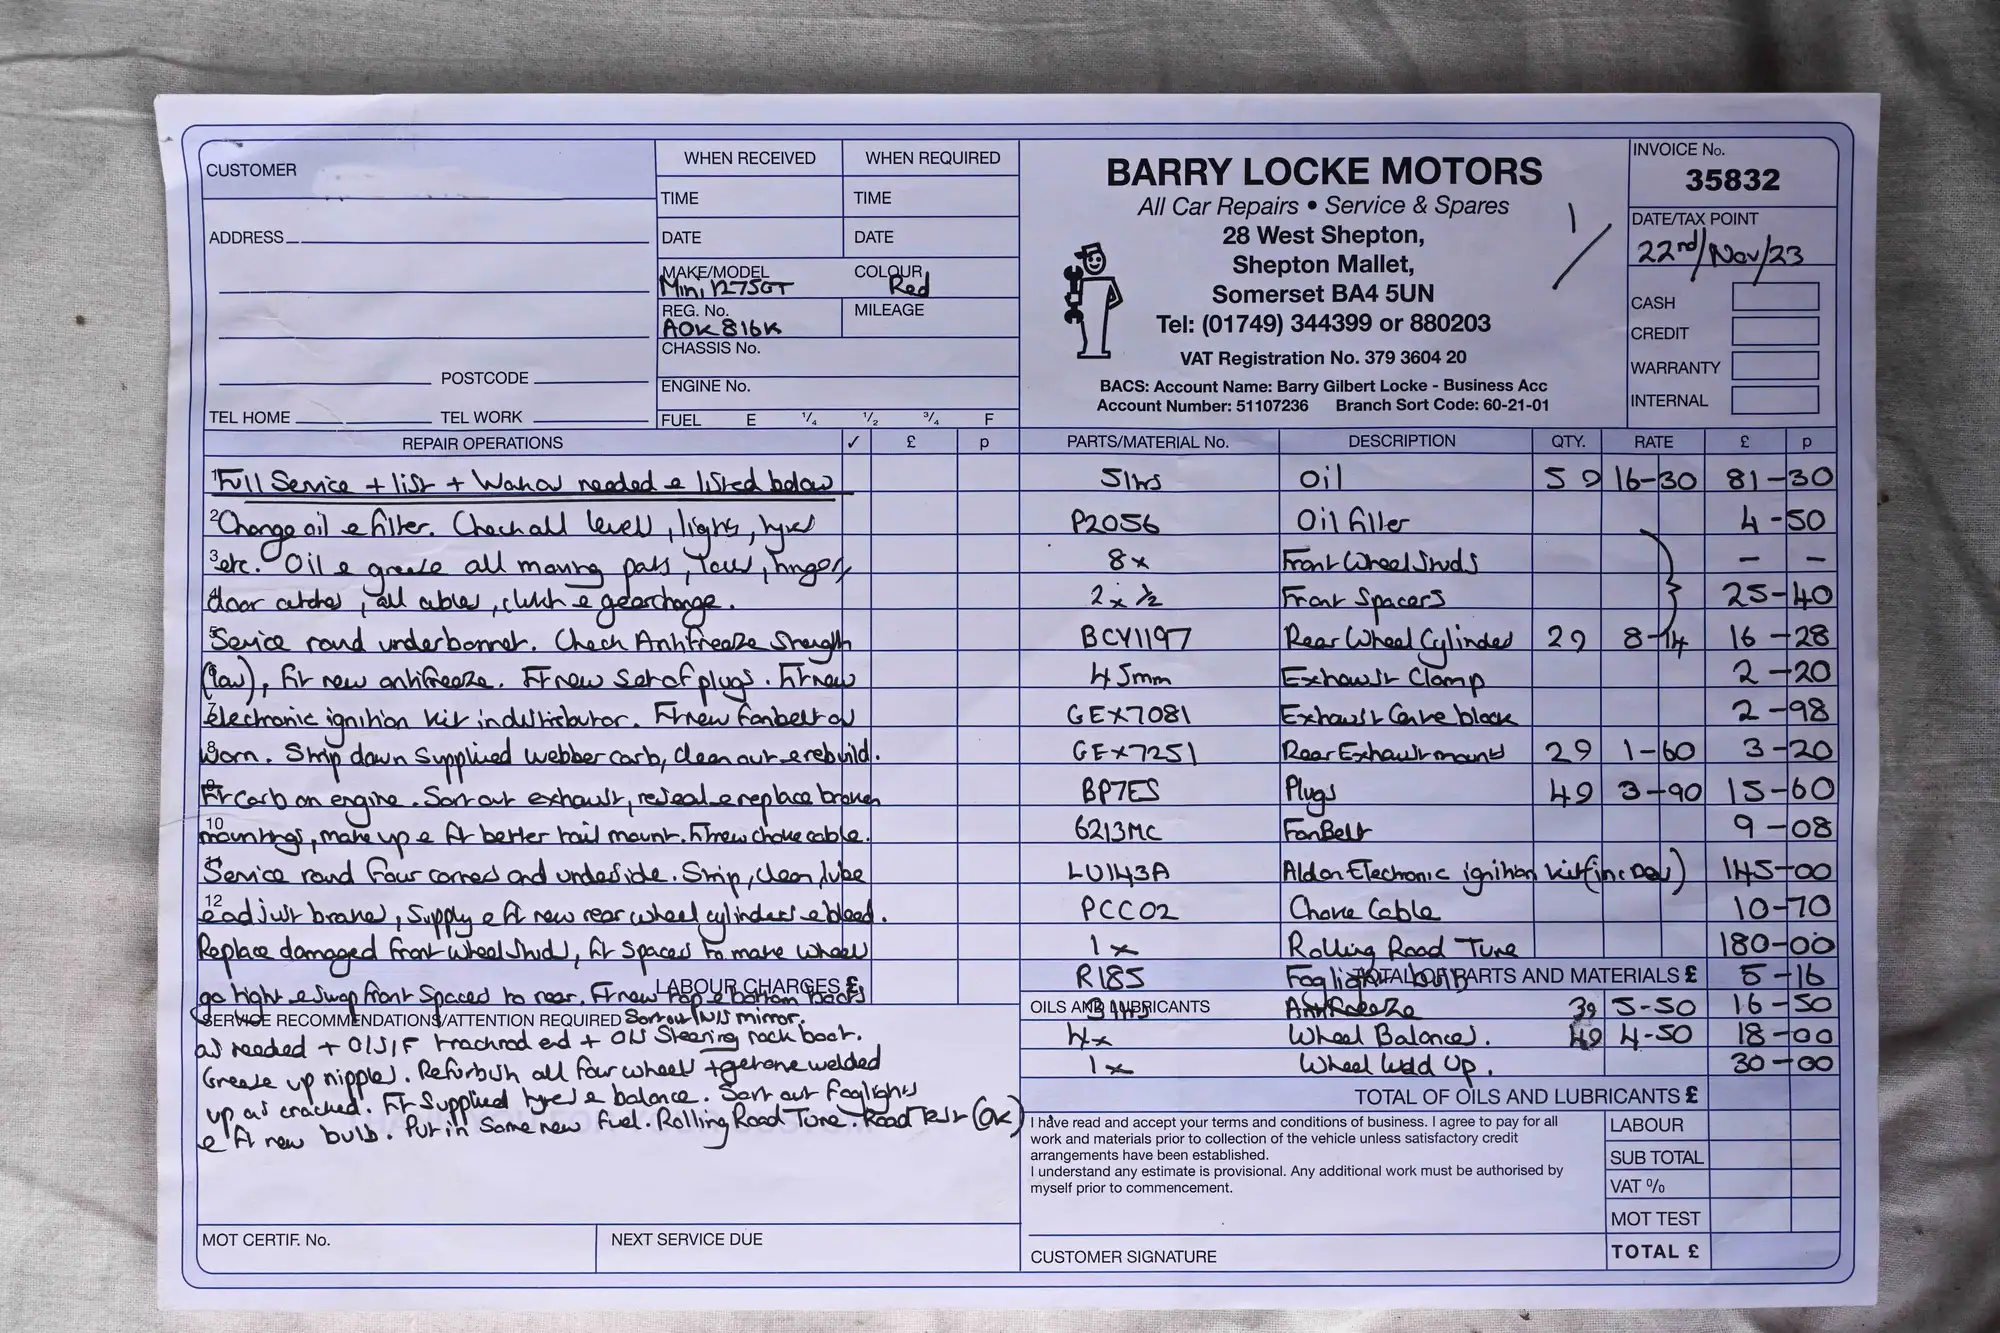 CUSTOMER
ADDRESS
POSTCODE
TEL HOME TEL WORK
WHEN RECEIVED WHEN REQUIRED
TIME TIME
DATE DATE
MAKE/MODEL COLOUR
Mini 1275GT Red
REG. No. MILEAGE
AOK 816K
CHASSIS No.
ENGINE No.
FUEL E 1/4 1/2 3/4 F
BARRY LOCKE MOTORS
All Car Repairs • Service & Spares
28 West Shepton,
Shepton Mallet,
Somerset BA4 5UN
Tel: (01749) 344399 or 880203
VAT Registration No. 379 3604 20
BACS: Account Name: Barry Gilbert Locke - Business Acc
Account Number: 51107236 Branch Sort Code: 60-21-01
1/
INVOICE No.
35832
DATE/TAX POINT
22nd/Nov/23
CASH
CREDIT
WARRANTY
INTERNAL
REPAIR OPERATIONS ✓ £ p
1 Full Service + list + needed & listed below
2 Change oil & filter. Check all levels, lights, tyres
3 etc. Oil & grease all moving parts, locks, hinges,
4 door catches, all cables, clutch & gearchange.
5 Service round underbonnet. Check Antifreeze Strength
6 (low), fit new antifreeze. Fit new set of plugs. Fit new
7 electronic ignition kit in distributor. Fit new fanbelt as
8 worn. Strip down supplied webber carb, clean out & rebuild.
9 Fit carb on engine. Sort out exhaust, reseal & replace broken
10 mountings, make up & fit better tail mount. Fit new choke cable.
11 Service round four corners and underside. Strip, clean, lube
12 & adjust brakes, supply & fit new rear wheel cylinders & bleed.
Replace damaged front wheel studs, fit spacers to make wheels
LABOUR CHARGES £
go right & swap front spacers to rear. Fit new top & bottom
SERVICE RECOMMENDATIONS/ATTENTION REQUIRED Sort out N/S mirror.
as needed + O/S/F trackrod end + O/S Steering rack boot.
Grease up nipples. Refurbish all four wheels + get one welded
up as cracked. Fit supplied tyres & balance. Sort out foglights
& fit new bulb. Put in some new fuel. Rolling Road Tune. Road Test (OK)
MOT CERTIF. No. NEXT SERVICE DUE
PARTS/MATERIAL No. DESCRIPTION QTY. RATE £ p
5ltrs Oil 5 @ 16-30 81-30
P2056 Oil filter 4-50
8x Front Wheel Studs - -
2 x 1/2 Front Spacers 25-40
BCY1197 Rear Wheel Cylinders 2@ 8-14 16-28
45mm Exhaust Clamp 2-20
GEX7081 Exhaust block 2-98
GEX7251 Rear Exhaust mounts 2@ 1-60 3-20
BP7ES Plugs 4@ 3-90 15-60
6213MC FanBelt 9-08
LU143A Aldon Electronic ignition kit (inc Del) 145-00
PCC02 Choke Cable 10-70
1x Rolling Road Tune 180-00
TOTAL OF PARTS AND MATERIALS £
R185 Foglight bulb 5-16
OILS AND LUBRICANTS
Antifreeze 3@ 5-50 16-50
4x Wheel Balances. 4@ 4-50 18-00
1x Wheel Weld Up. 30-00
TOTAL OF OILS AND LUBRICANTS £
I have read and accept your terms and conditions of business. I agree to pay for all
work and materials prior to collection of the vehicle unless satisfactory credit
arrangements have been established.
I understand any estimate is provisional. Any additional work must be authorised by
myself prior to commencement.
CUSTOMER SIGNATURE
LABOUR
SUB TOTAL
VAT %
MOT TEST
TOTAL £